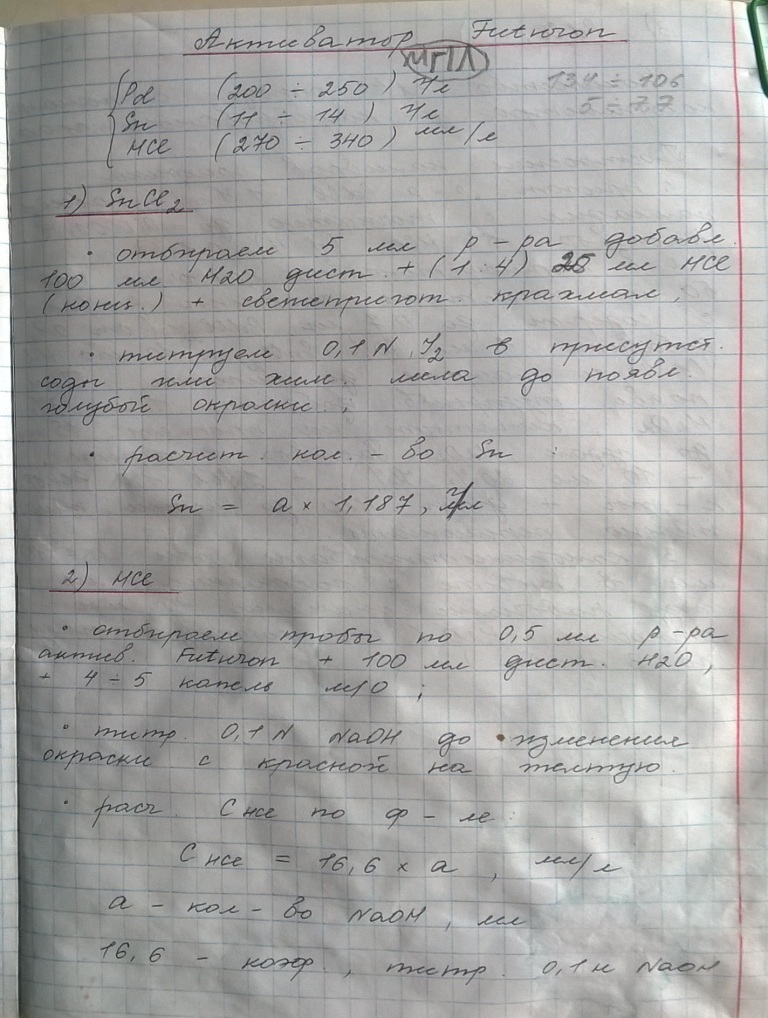 Активатор Futuron
мг/л
Pd (200 ÷ 250) г/л 134 ÷ 106
Sn (11 ÷ 14) г/л 5 ÷ 7,7
HCl (270 ÷ 340) мл/л
1) SnCl2
• отбираем 5 мл р-ра добавл.
100 мл H2O дист. + (1:4) 25 мл HCl
(конц.) + свежепригот. крахмал;
• титруем 0,1 N J2 в присутст.
соды или хим. мела до появл.
голубый окраски;
• расчит. кол.-во Sn :
Sn = a × 1,187, г/л
2) HCl
• отбираем пробы по 0,5 мл р-ра
актив. Futuron + 100 мл дист. H2O,
+ 4 ÷ 5 капель м/о ;
• титр. 0,1 N NaOH до изменения
окраски с красной на желтую.
• расч. C HCl по ф-ле:
C HCl = 16,6 × a , мл/л
a - кол-во NaOH, мл
16,6 - коэф., титр. 0,1 н NaOH